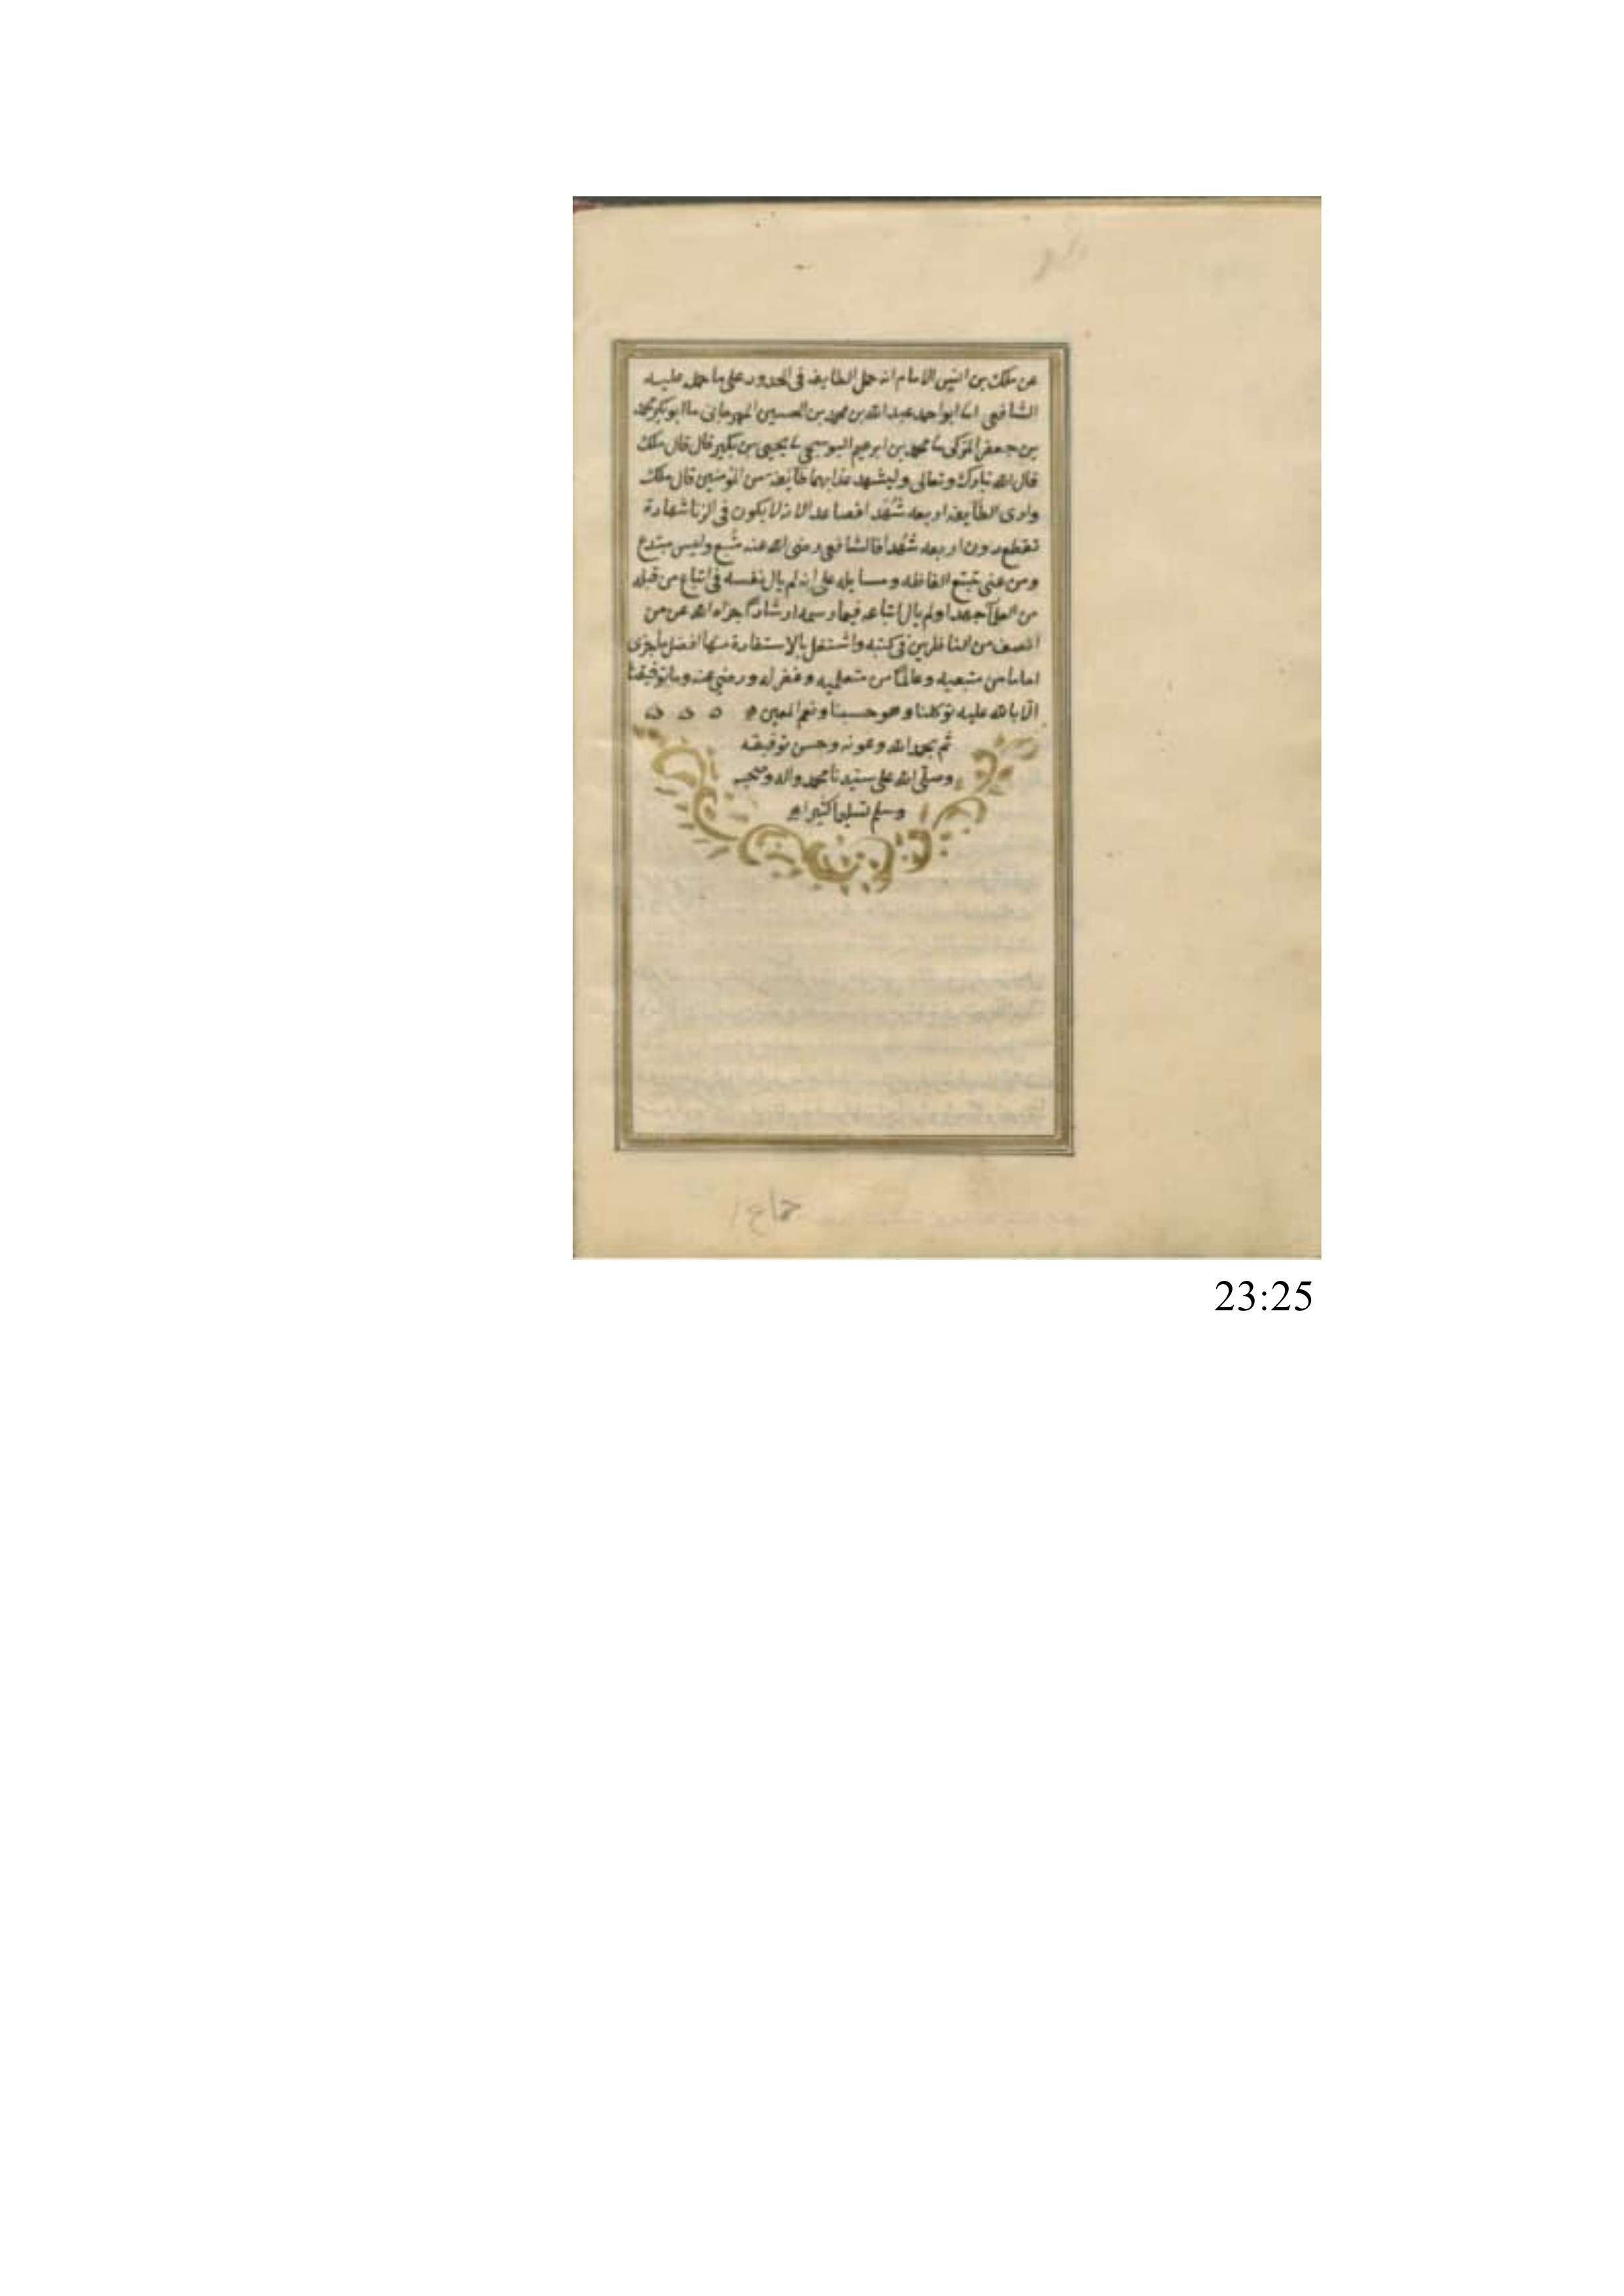 عن ملك بن انيس الامام انه حمل الطايفه فى الحدود على ما حمله عليه
الشافعى ابو احمد عبد الله بن محمد بن الحسين المهرجانى ابو بكر محمد
بن جعفر المزكى محمد بن ابرهيم البوسنجى يحيى بن بكير قال قال ملك
قال الله تبارك وتعالى وليشهد عذابهما طايفه من المومنين قال ملك
وارى الطايفه اربعه شُهَدا فصاعدا لانه لا يكون فى الزنا شهادة
تقطع دون اربعه شُهَدا فالشافعى رضى الله عنه متَّبع وليس مبتدع
ومن عنى بتتبع الفاظه ومسايله على انه لم يال نفسه فى اتباع من قبله
من العلمآ جهدا ولم يال اتباعه فيما رسمه ارشادًا جزاه الله عن من
انصف من الناظرين فى كتبه واشتغل بالاستفادة منها افضل ما جزى
اماما من متبعيه وعالمًا من متعلميه وغفر له ورضى عنه وما توفيقنا
الّا بالله عليه توكلنا وهو حسبنا ونعم المعين
تم بحمد الله وعونه وحسن توفيقه
وصلّى الله على سيّدنا محمد واله وصحبه
وسلم تسليما كثيرا
23:25